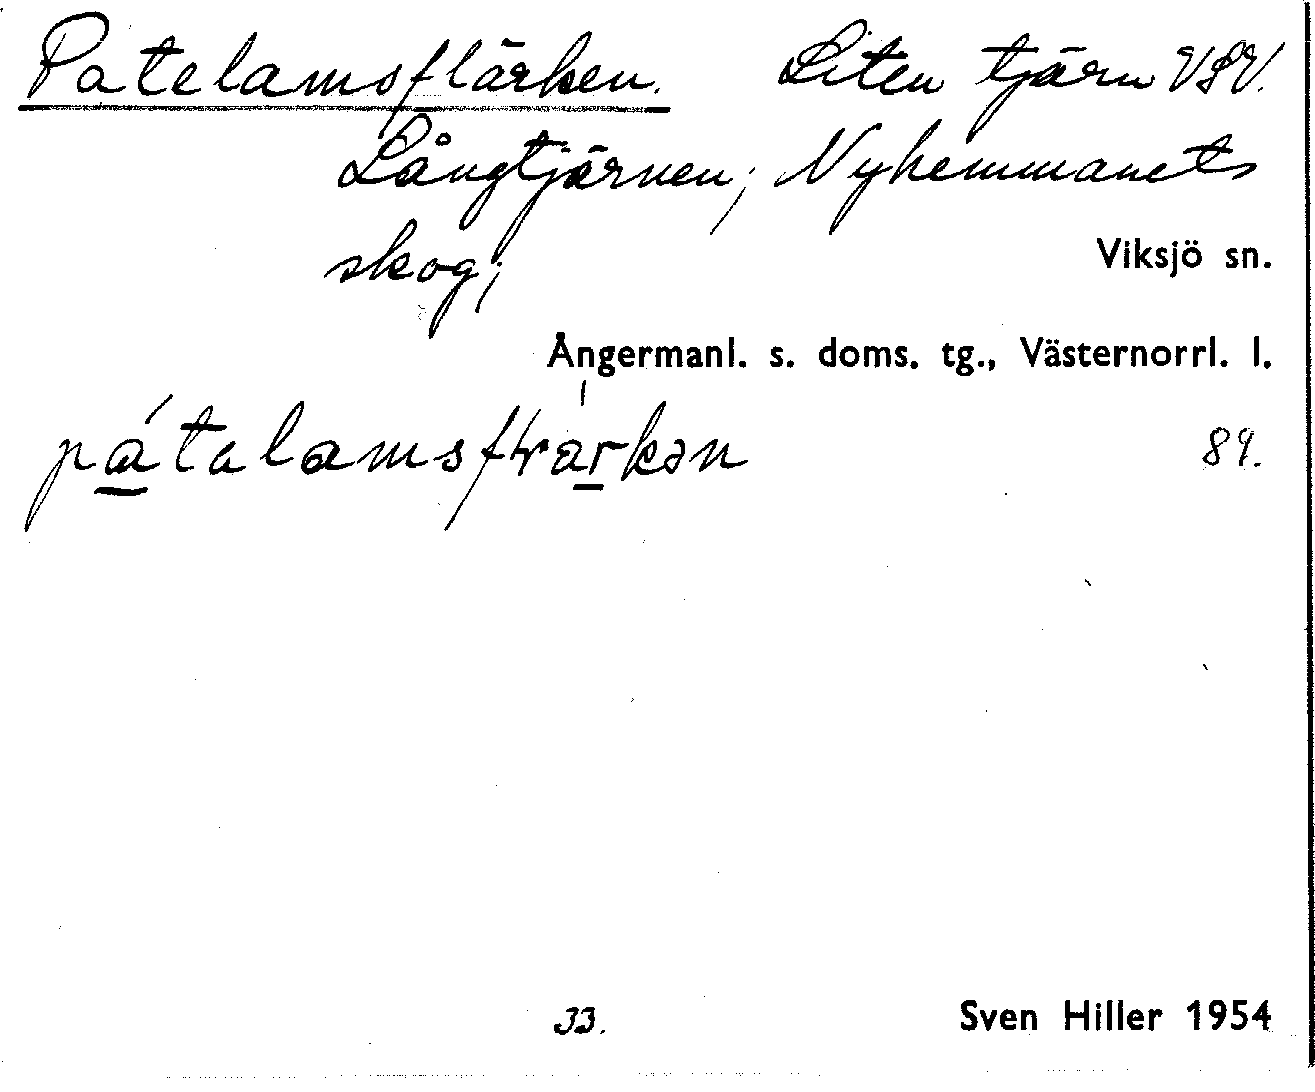 Patelamsflärken. Liten tjärn VSV.
Långtjärnen; Nyhemmanets
skog;
Viksjö sn.
Ångermanl. s. doms. tg., Västernorrl. l.
89.
33.
Sven Hiller 1954